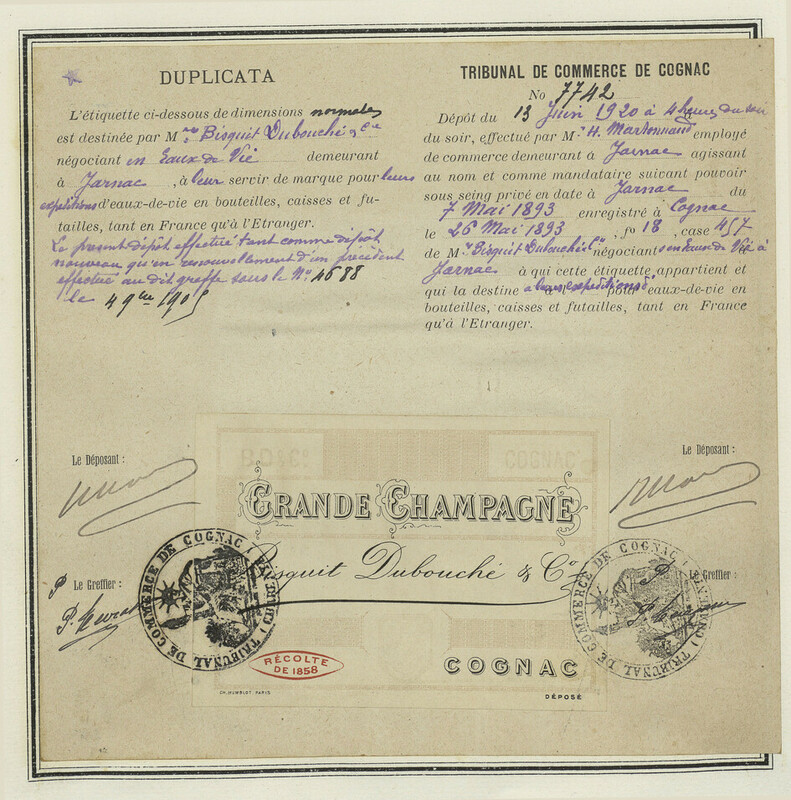 DUPLICATA
L'étiquette ci-dessous de dimensions normales
est destinée par M.rs Bisquit Dubouché & Cie
négociant en Eaux de Vie demeurant
à Jarnac, à leur servir de marque pour leurs
expéditions d'eaux-de-vie en bouteilles, caisses et fu-
tailles, tant en France qu'à l'Etranger.
Le présent dépôt effectué tant comme dépôt
nouveau qu'en renouvellement d'un précédent
effectué au dit greffe sous le No. 4688
le 4 9bre 1905
TRIBUNAL DE COMMERCE DE COGNAC
No 7742
Dépôt du 13 Juin 1920 à 4 heures du soir
du soir, effectué par M. H. Martonnaud employé
de commerce demeurant à Jarnac agissant
au nom et comme mandataire suivant pouvoir
sous seing privé en date à Jarnac du
7 Mai 1893 enregistré à Cognac
le 26 Mai 1893, fo 18, case 457
de M.rs Bisquit Dubouché & Co négociants en Eaux de Vie à
Jarnac à qui cette étiquette appartient et
qui la destine à leurs expéditions d'eaux-de-vie en
bouteilles, caisses et futailles, tant en France
qu'à l'Etranger.
Le Déposant :
Le Déposant :
GRANDE CHAMPAGNE
Bisquit Dubouché & Co.
Le Greffier :
Le Greffier :
TRIBUNAL DE COMMERCE DE COGNAC
TRIBUNAL DE COMMERCE DE COGNAC
RÉCOLTE
DE 1858
COGNAC
CH. HUMBLOT. PARIS
DÉPOSÉ